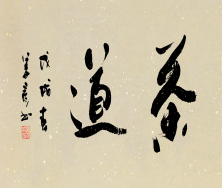 茶
道
戊戌春